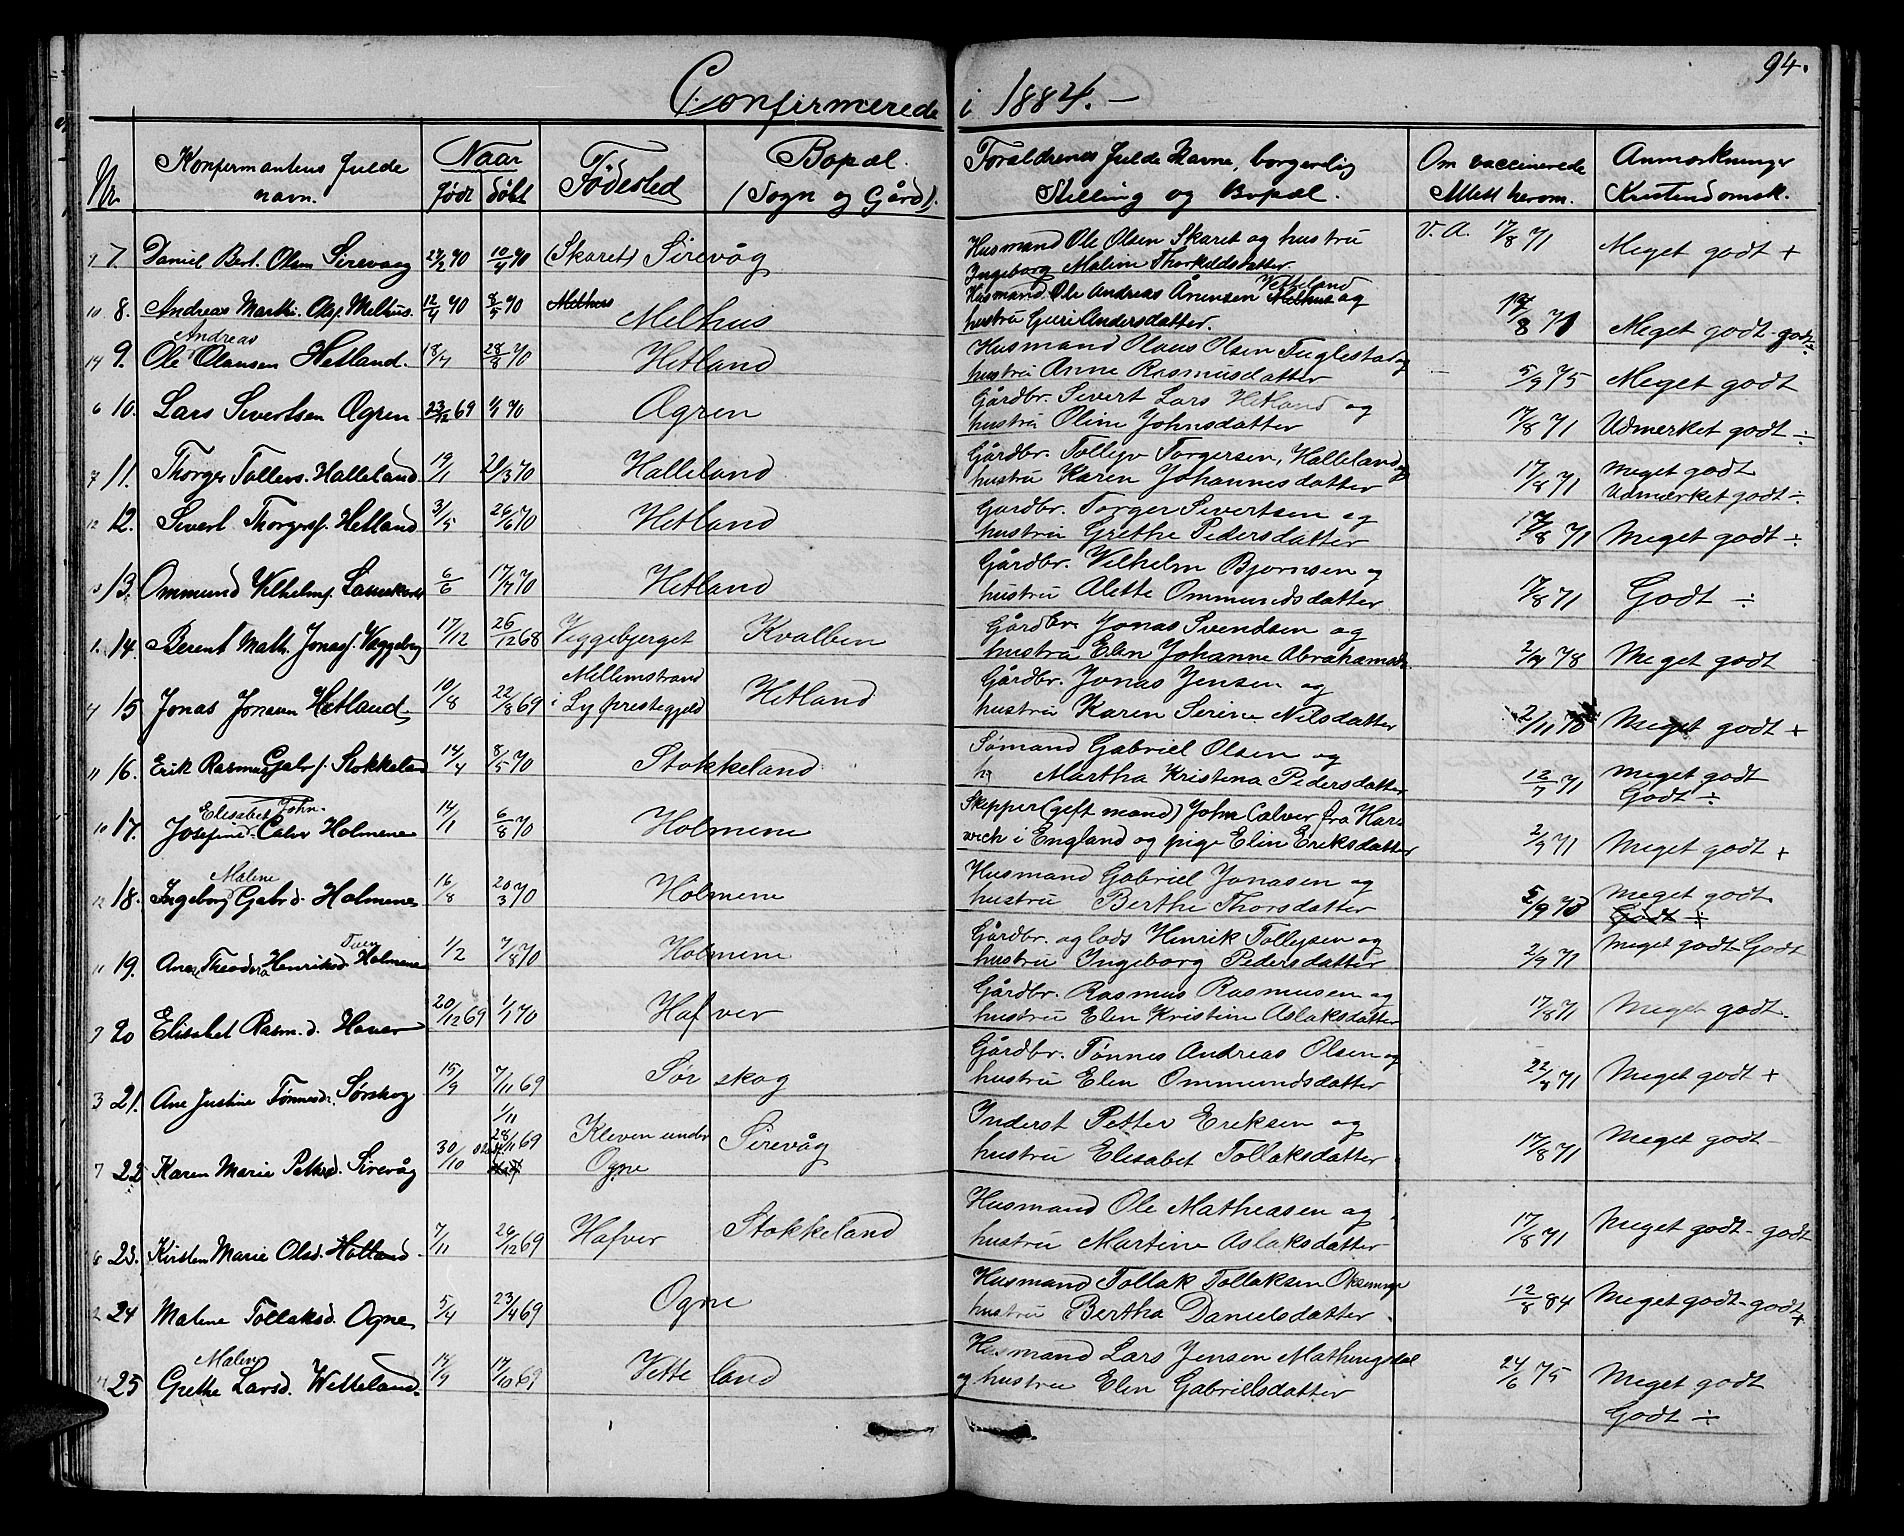 94.
Confirmerede i 1884.-
Nr. Konfirmantens fulde navn. Naar født døbt Fødested Bopæl. (Sogn og Gård). Forældrenes fulde Navne, borgerlig Stilling og Bopæl. Om vaccinerede Attest herom. Anmærkninger Kristendomsk.
7. Daniel Bert. Olsen Sirevaag 27/2 70 10/4 70 (Skaret) Sirevåg Husmand Ole Olsen Skaret og hustru V. A. 17/8 71 Meget godt +
Ingeborg Maline Thorkildsdatter
10 8. Andreas Marthi. Olsf. Melhus. 12/4 70 8/5 70 Melhus Husmand Ole Andreas Ånensen Vetteland og 17/8 71 Meget godt - godt ÷
hustru Guri Andersdatter.
14 9. Ole Andreas Olausen Hetland. 18/7 28/8 70 Hetland Husmand Olaus Olsen Fuglestad og 5/9 75 Meget godt
hustru Anne Rasmusdatter
6 10. Lars Sivertsen Ogren 23/12 69 1/1 70 Ogren Gårdbr. Sivert Lars Hetland og 17/8 71 Udmerket godt ÷
hustru Oline Johnsdatter
7 11. Thorger Tollevs. Halleland 19/1 20/3 70 Halleland Gårdbr. Tollejv Torgersen, Halleland og 17/8 71 Meget godt
hustru Karen Johannesdatter Udmærket godt ÷
12 12. Sivert Thorgersf. Hetland 31/5 26/6 70 Hetland Gårdbr. Torger Sivertsen og 17/8 71 Meget godt ÷
hustru Grethe Pedersdatter
3 13. Ommund Vilhelmsf. 6/6 17/7 70 Hetland Gårdbr. Vilhelm Bjørnsen og 17/8 71 Godt ÷
hustru Alette Ommundsdatter
1. 14. Berent Math. Jonasf. Veggebrg 17/12 26/12 68 Veggebjerget Kvalben Gårdbr. Jonas Svendsen og 2/9 78 Meget godt
hustru Elen Johanne Abrahamsdtr.
4 15 Jonas Jonasen Hetland 10/8 22/8 69 Mellemstrand i Ly præstegjeld Hetland Gårdbr. Jonas Jensen og 2/11 70 Meget godt +
hustru Karen Serine Nilsdatter
11 16. Erik Rasmus Gabrf. Stokkeland 14/4 8/5 70 Stokkeland Sømand Gabriel Olsen og 12/7 71 Meget godt
h Martha Kristina Pedersdatter Godt ÷
10 17. Josefine Elisabet John-d. Calver Holmene 14/1 6/8 70 Holmene Skipper (gift mand) John Calver fra Har- 2/9 71 Meget godt +
wich i England og pige Elin Eriksdatter
12 18. Ingeborg Malene Gabrd. Holmene 16/8 20/3 70 Holmene Husmand Gabriel Jonasen og 5/9 73 Meget godt.
hustru Berthe Thorsdatter Godt ÷
11 19. Ane Theodora Henriksd. Tuen Holmene 1/2 7/8 70 Holmene Gårdbr. og lods Henrik Tollejsen og 2/9 71 Meget godt Godt
hustru Ingeborg Pedersdatter
9 20 Elisabet Rasm.d. Haver 20/12 69 1/1 70 Hafver Gårdbr. Rasmus Rasmusen og 17/8 71 Meget godt.
hustru Elen Kristine Aslaksdatter
3 21. Ane Justine Tønnesd. Sørskog 15/9 7/11 69 Sørskog Gårdbr. Tønnes Andreas Olsen og 22/9 71 Meget godt +
hustru Elen Ommundsdatter
7 22 Karen Marie Pettersd. Sirevåg 30/10 1/11 28/11 69 Kleven under Ogne Sirevåg Inderst Petter Eriksen og 17/8 71 Meget godt -
hustru Elisabet Tollaksdatter
8 23. Kirsten Marie Olsd. Hetland 7/11 26/12 69 Hafver Stokkeland Husmand Ole Matheasen og 17/8 71 Meget godt - godt
hustru Martine Aslaksdatter
2 24 Malene Tollaksd. Ogne 5/4 23/4 69 Ogne Husmand Tollak Tollaksen og 12/8 84 Meget godt - godt +
hustru Bertha Danielsdatter
4 25 Grethe Malene Larsd. Wetteland. 14/9 17/10 69 Vetteland Husmand Lars Jensen Mathingsdal 24/6 75 Meget godt
og hustru Elen Gabrielsdatter Godt ÷